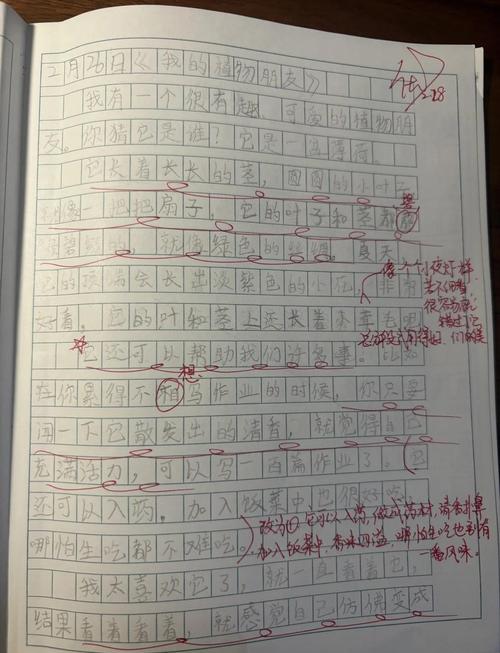 2月26日《我的植物朋友》
我有一个很有趣、可爱的植物朋
友。你猜它是谁？它是一盆薄荷。
它长着长长的茎，圆圆的小叶子
像一把把扇子，它的叶子和茎都
碧绿的，就像绿色的丝绸。夏天
它的顶端会长出淡紫色的小花，非常
好看。它的叶和茎上还长着
它还可以帮助我们许多事。比如
在你累得不相写作业的时候，你只要
想
闻一下它散发出的清香，就觉得自己
充满活力，可以写一百篇作业了。它
还可以入药。加入饭菜中也很好吃
哪怕生吃都不难吃。
我太喜欢它了，就一直看着它，
结果看着看着，就感觉自己仿佛变成
2.28
像一个个小夜灯一样
若不仔细看
很容易就
错过它
改为：它可以入药，做成药材，清香扑鼻
加入饭菜中，香味四溢，哪怕生吃也别有
一番风味。